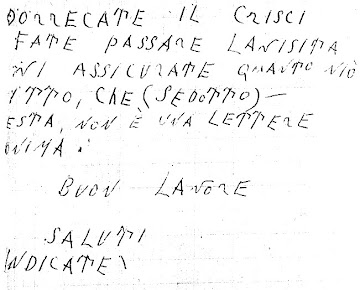 DORRECATE IL CRISCI
FATE PASSARE LANISITA
NI ASSICURATE QUANTO NIÒ
ITTO, CHE (SEDOTTO) —
ESTA, NON È UNA LETTERE
NIMA.
BUON LANORE
SALUTI
NDICATE)